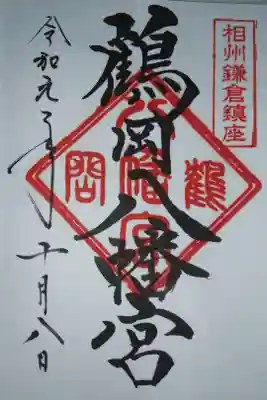 相州鎌倉鎮座
鶴岡八幡宮
鶴岡八幡宮
令和元年十月八日